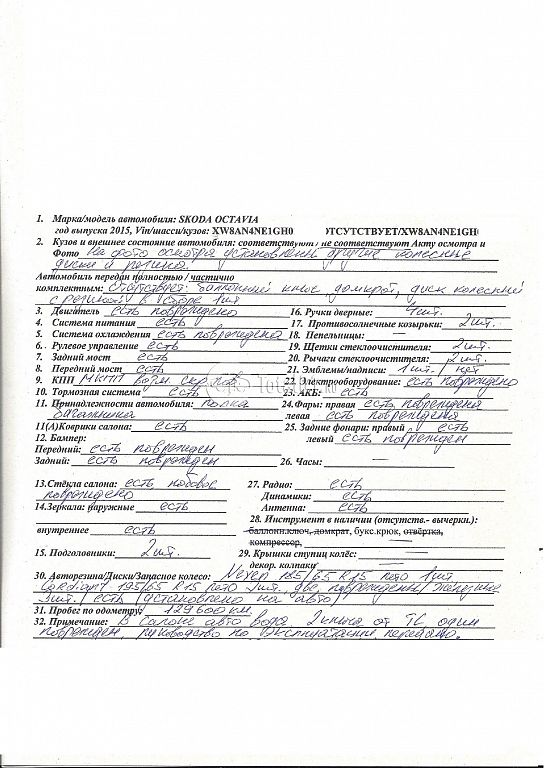 1. Марка/модель автомобиля: SKODA OCTAVIA
год выпуска 2015, Vin/шасси/кузов: XW8AN4NE1GH0 ОТСУТСТВУЕТ/XW8AN4NE1GH0
2. Кузов и внешнее состояние автомобиля: соответствуют/ не соответствуют Акту осмотра и
Фото на фото осмотра установлены другие колесные
диски и резина.
Автомобиль передан полностью/ частично
комплектным: Отсутствует: баллонный ключ, домкрат, диск колесный
с резиной в сборе 1шт
3. Двигатель есть повреждено 16. Ручки дверные: 4шт.
4. Система питания есть 17. Противосолнечные козырьки: 2шт.
5. Система охлаждения есть повреждена 18. Пепельницы:
6. Рулевое управление есть 19. Щетки стеклоочистителя: 2шт.
7. Задний мост есть 20. Рычаги стеклоочистителя: 2шт.
8. Передний мост есть 21. Эмблемы/надписи: 1шт / нет
9. КПП МКПП 22. Электрооборудование: есть повреждено
10. Тормозная система есть 23. АКБ: есть
11. Принадлежности автомобиля: полка 24. Фары: правая есть повреждена
багажника левая есть повреждена
11(А)Коврики салона: есть 25. Задние фонари: правый есть
12. Бампер: левый есть поврежден
Передний: есть поврежден
Задний: есть поврежден 26. Часы:
13. Стёкла салона: есть лобовое 27. Радио: есть
повреждено Динамики: есть
14. Зеркала: наружные есть Антенна: есть
28. Инструмент в наличии (отсутств.- вычеркн.):
внутреннее есть баллон.ключ, домкрат, букс.крюк, отвёртка,
компрессор,
15. Подголовники: 2шт. 29. Крышки ступиц колёс:
декор. колпаки
30. Авторезина/Диски/Запасное колесо: Nexen 185/65 R15 лето 1шт
Cordiant 195/65 R15 лето 3шт. две повреждены/
3шт. есть (установлено на авто)
31. Пробег по одометру 129600км.
32. Примечание: В салоне авто вода. 2ключа от ТС один
поврежден, руководство по эксплуатации передано.